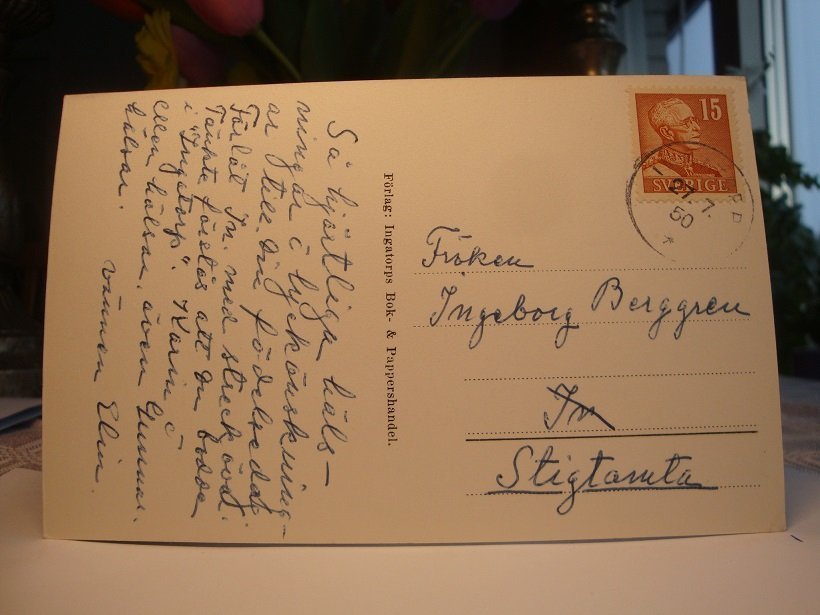 Så hjärtliga häls-
ningar i lyckönskning-
ar till din födelsedag
Förlåt In. med streck övd.
Tänkte först att du bodde
i "Ingatorp". Karin E
eller hälsar, även Gunnar.
hälsar.
vännen Elin.
Förlag: Ingatorps Bok- & Pappershandel.
15
SVERIGE
21.7.
50
Fröken
Ingeborg Berggren
In
Stigtomta